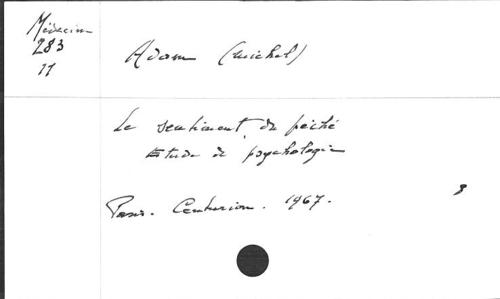 Médecine
283
11
Adam (Michel)
Le sentiment du péché
Etude de psychologie
Paris. Centurion. 1967.
8